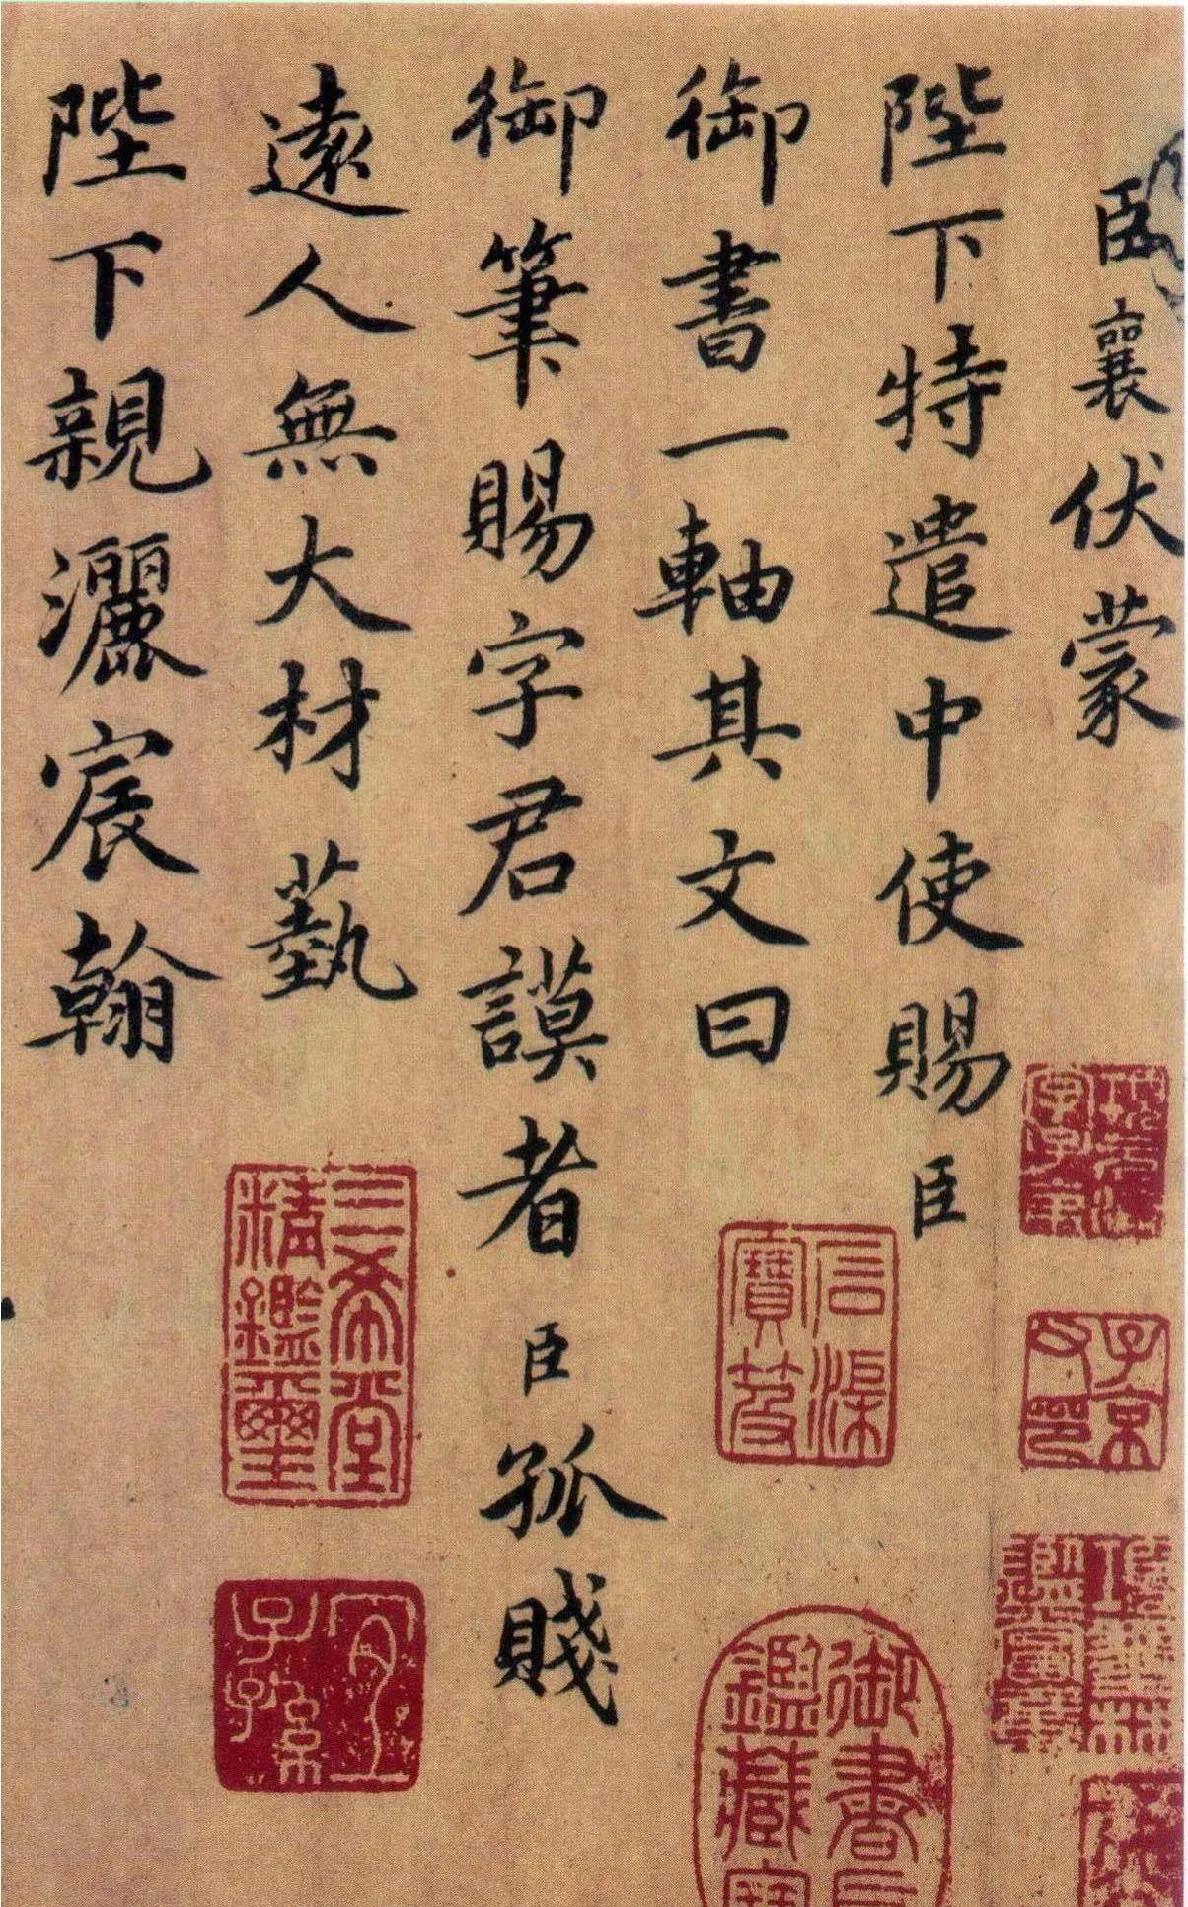 臣襄伏蒙
陛下特遣中使賜臣
御書一軸其文曰
御筆賜字君謨者臣孤賤
遠人無大材藝
陛下親灑宸翰
石渠
寶笈
三希堂
精鑑璽
宜
子孫
御書
鑑藏寶